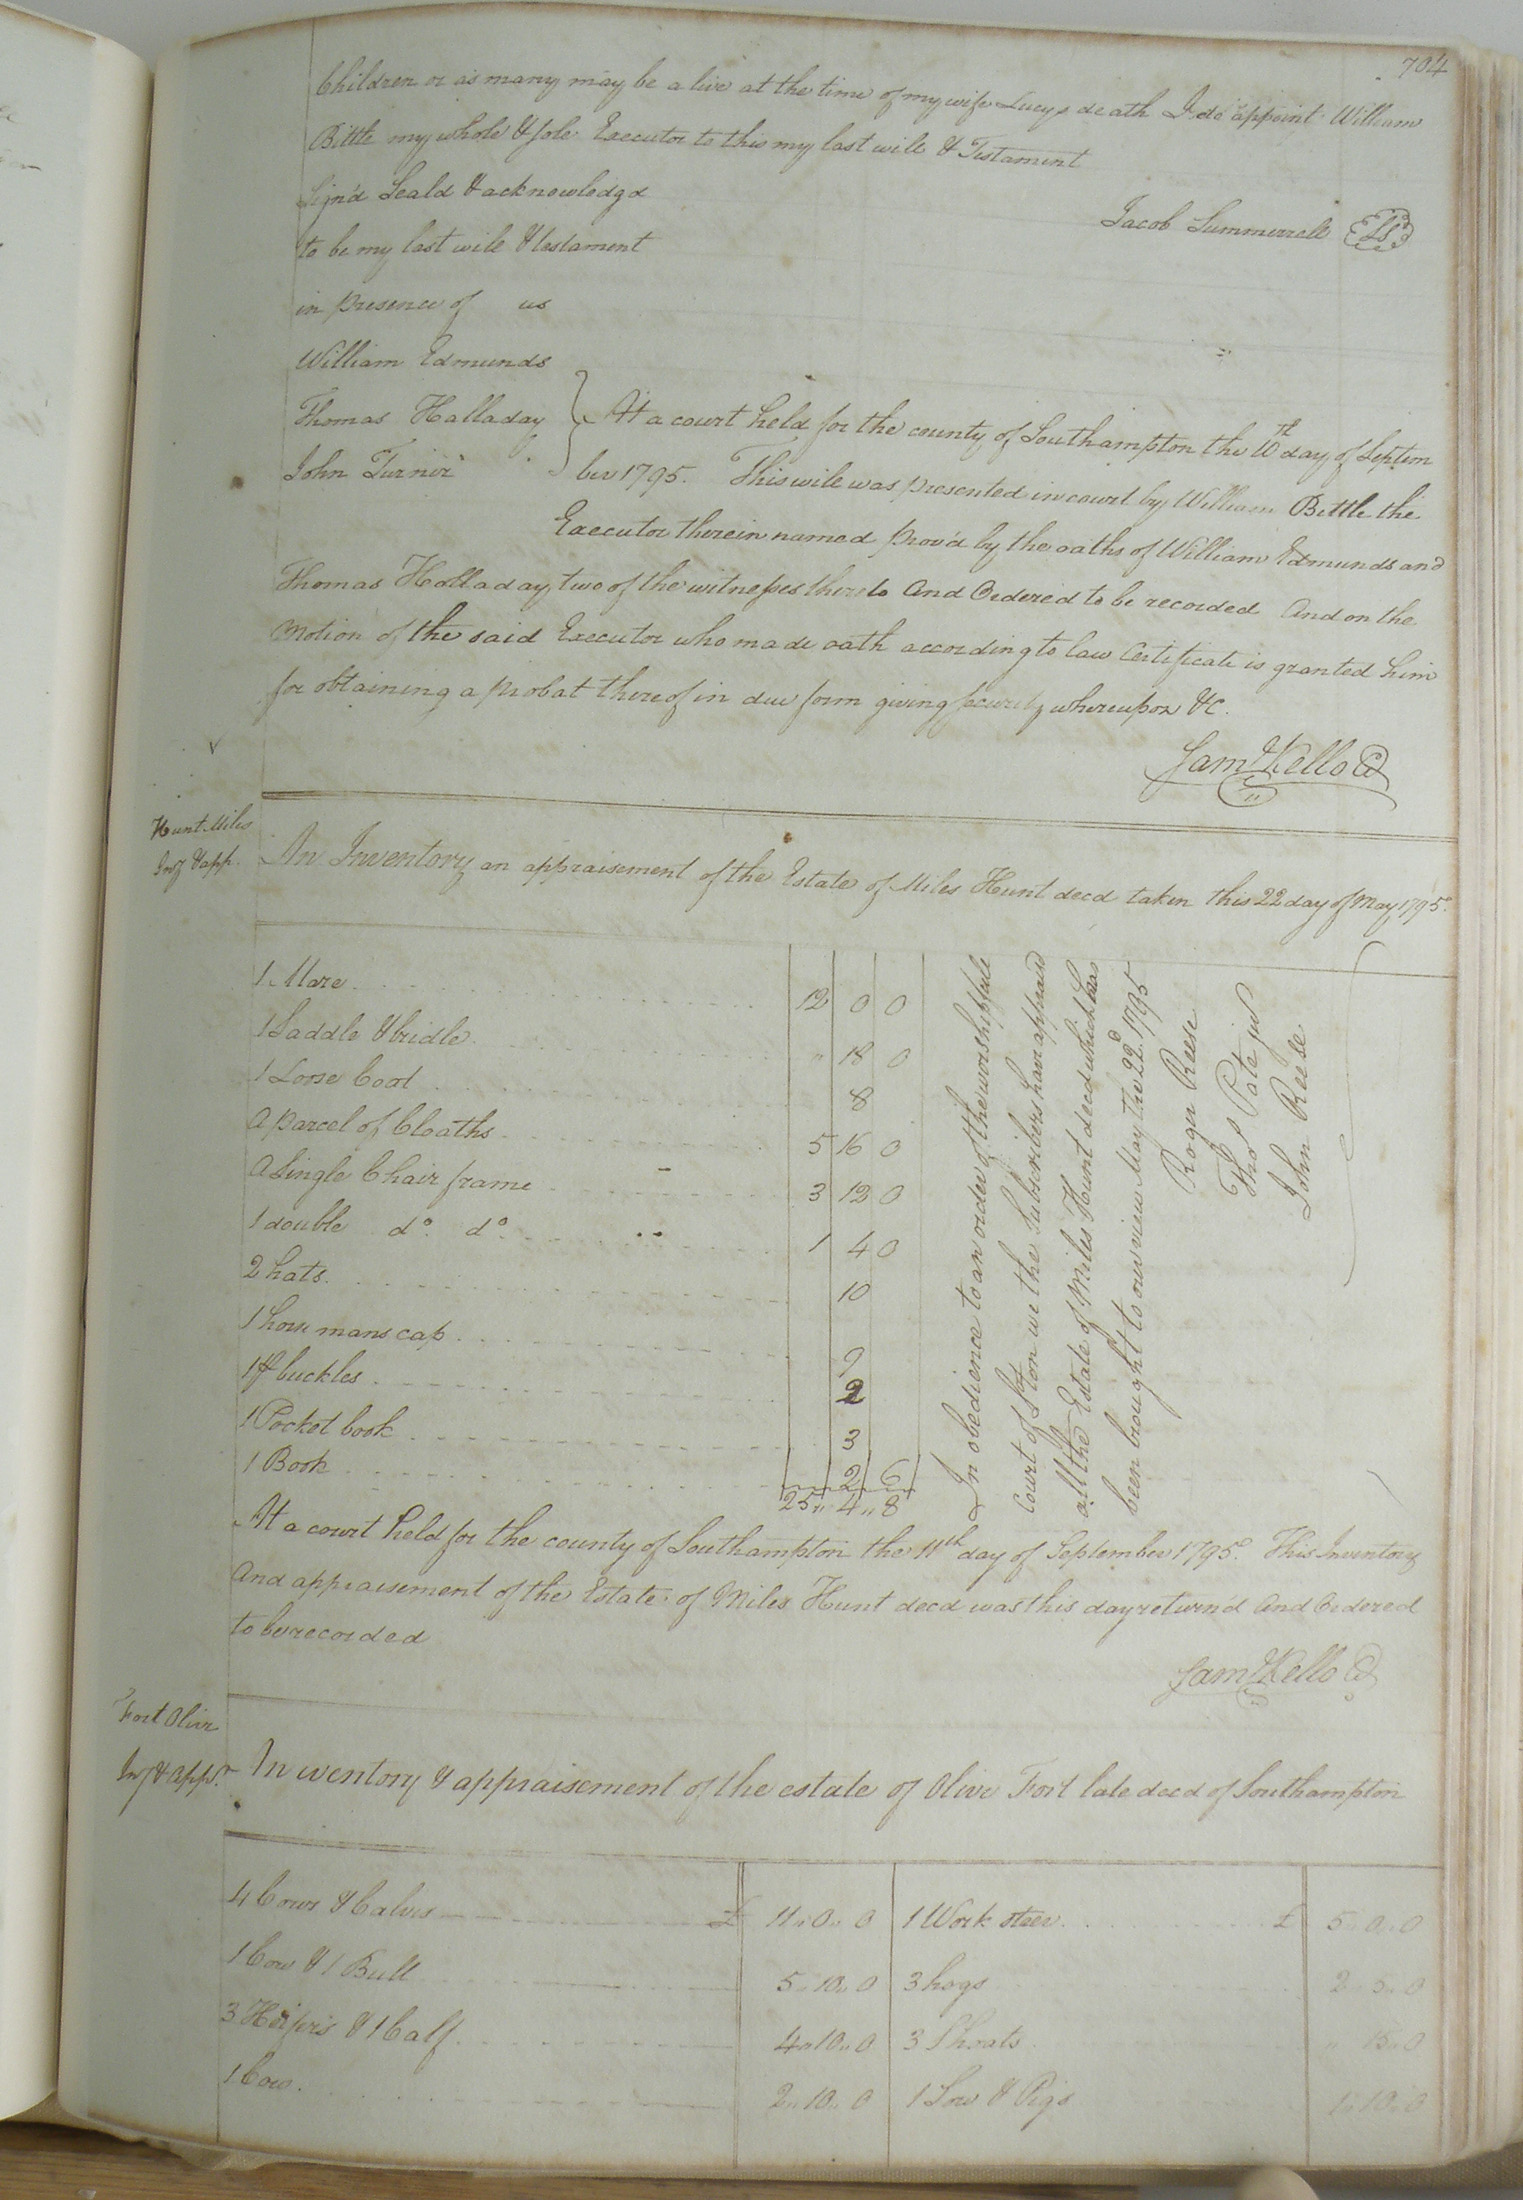 704
Children or as many may be alive at the time of my wife Lucys death I do appoint William
Bittle my whole & sole Executor to this my last will & Testament
Sign'd Seald & acknowledgd
to be my last will & testament
in presence of us
Jacob Summerrell LS
William Edmunds
Thomas Halladay
John Turner
At a court held for the county of Southampton the 10th day of Septem
ber 1795. This will was presented in court by William Bittle the
Executor therein named prov'd by the oaths of William Edmunds and
Thomas Halladay two of the witnesses thereto And Ordered to be recorded And on the
Motion of the said Executor who made oath according to law Certificate is granted him
for obtaining a probat thereof in due form giving security whereupon &C.
Saml Kello
Hunt Miles
Invy & app.
An Inventory an appraisement of the Estate of Miles Hunt decd taken this 22 day of May 1795
1 Mare 12 0 0
1 Saddle & bridle " 18 0
1 Loose Coat 8
A parcel of Cloaths 5 16 0
A Single Chair frame 3 12 0
1 double do. do. 1 4 0
2 hats 10
1 horse mans cap 9
1 pr buckles 2
1 Pocket book 3
1 Book 2 6
25 " 4 " 8
In obedience to an order of the worshipfull
Court of Ston we the Subscribers have appraisd
all the Estate of Miles Hunt decd which has
been brought to our view May the 22d 1795
Roger Reese
Thos Pate jur
John Reese
At a court held for the county of Southampton the 11th day of September 1795. This Inventory
And appraisement of the Estate of Miles Hunt decd was this day return'd And Ordered
to be recorded
Saml Kello
Fort Olive
Invy & appr.
Inventory & appraisement of the estate of Olive Fort late decd of Southampton
4 Cows & Calves £ 11 " 0 " 0 1 Work steer £ 5 " 0 " 0
1 Cow & 1 Bull 5 " 10 " 0 3 hogs 2 " 5 " 0
3 Heifers & 1 Calf 4 " 10 " 0 3 Shoats " 15 " 0
1 Cow 2 " 10 " 0 1 Sow & Pigs 1 " 10 " 0